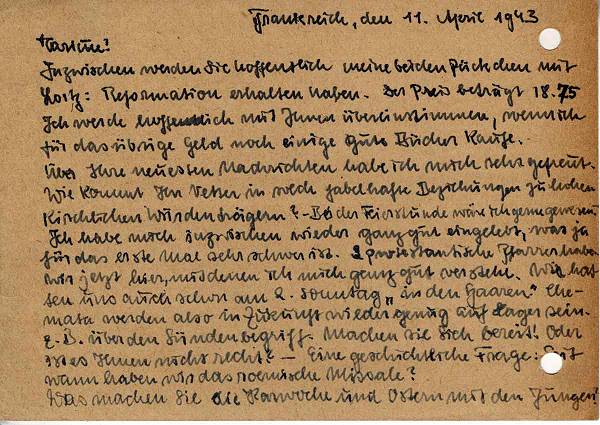 Frankreich, den 11. April 1943
Inzwischen werden Sie hoffentlich meine beiden Päckchen mit
Lortz: Reformation erhalten haben. Der Preis beträgt 18.75
Ich werde hoffentlich mit Ihnen übereinstimmen, wenn ich
für das übrige Geld noch einige gute Bücher kaufe.
Über Ihre neuesten Nachrichten habe ich mich sehr gefreut.
Wie kommt Ihr Vetter in solch fabelhafte Beziehungen zu hohen
kirchlichen Würdenträgern? - Bei der Feierstunde wäre ich gerne gewesen.
Ich habe mich inzwischen wieder ganz gut eingelebt, was ja
für das erste Mal sehr schwer ist. 2 protestantische Pfarrer haben
wir jetzt hier, mit denen ich mich ganz gut verstehe. Wir hat-
ten uns auch schon am 2. Sonntag „in den Haaren." The-
mata werden also in Zukunft wieder genug auf Lager sein.
z.B. über den Sündenbegriff. Machen Sie sich bereit! Oder
ist es Ihnen nicht recht? - Eine geschichtliche Frage: Seit
wann haben wir das roemische Missale?
Was machen Sie die Karwoche und Ostern mit den Jungen?